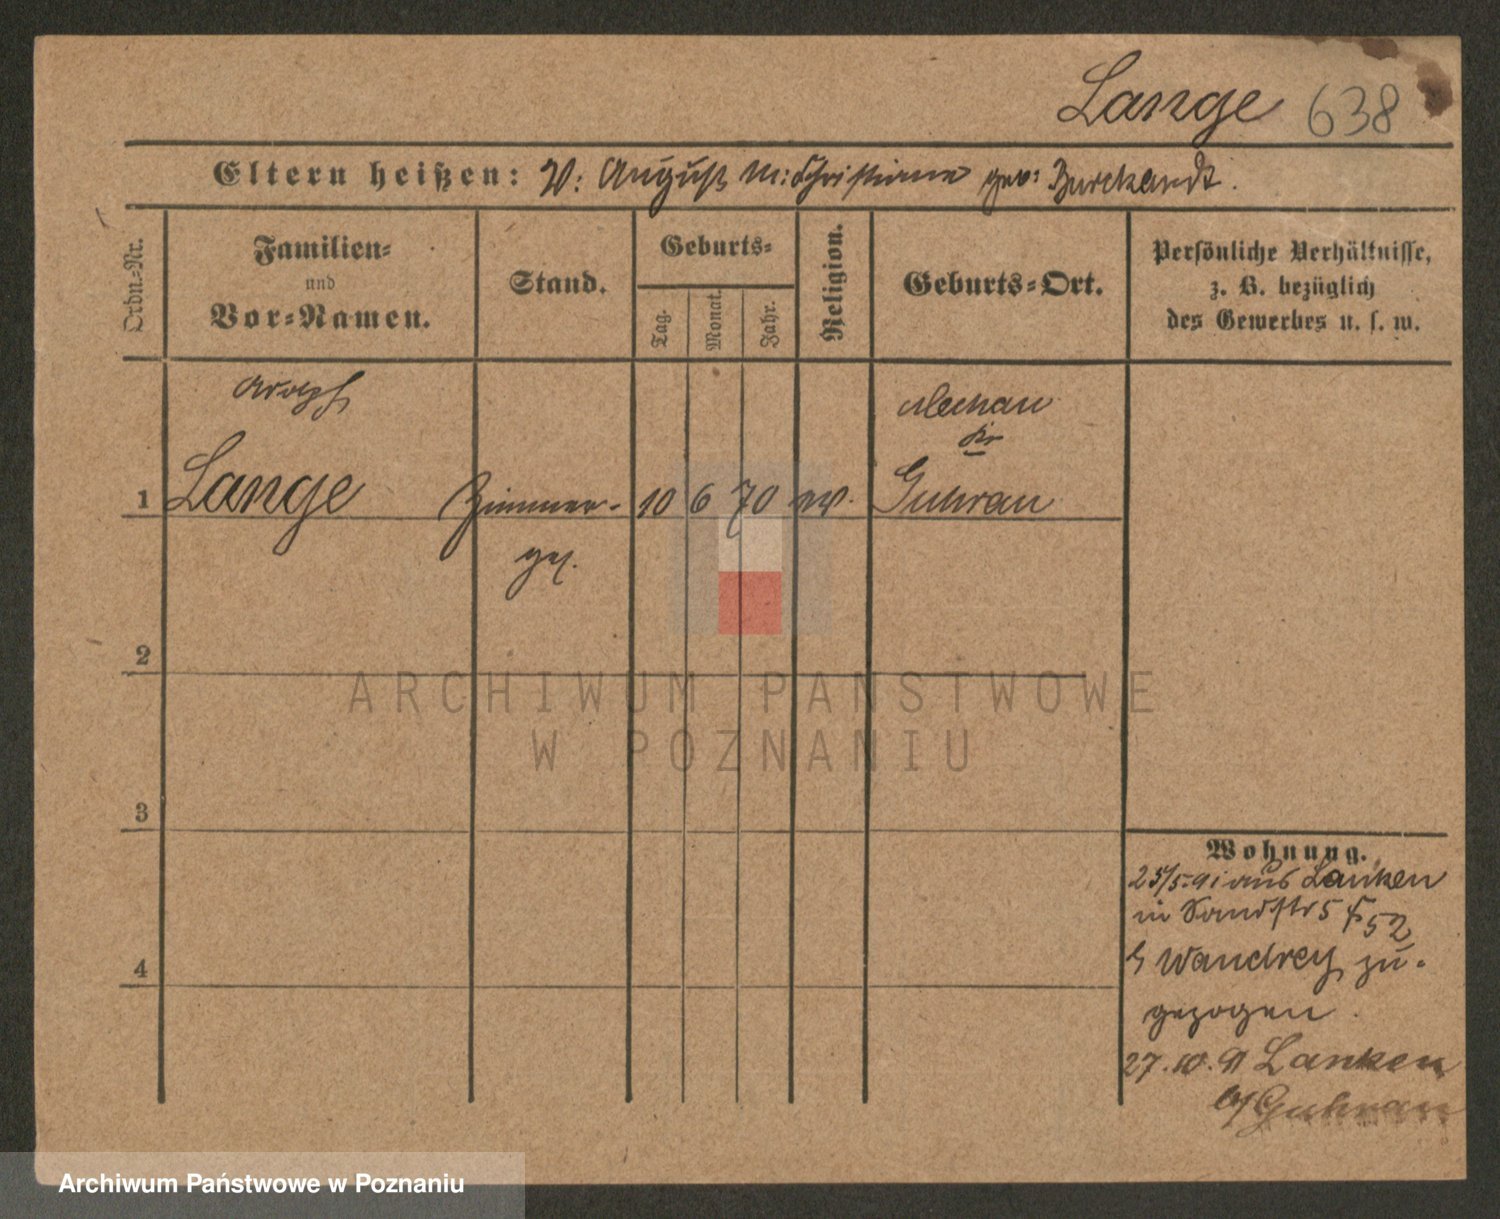 Lange 638
Eltern heißen: V: August M: Christiane geb: Burckardt.
Ordn.-Nr.
Familien-
und
Vor-Namen.
Stand.
Geburts-
Tag.
Monat.
Jahr.
Religion.
Geburts-Ort.
Persönliche Verhältnisse,
z. B. bezüglich
des Gewerbes u. s. w.
Adolf
Mechau
Kr
1 Lange Zimmer- 10 6 70 ev. Guhrau
ges.
2
3
4
Wohnung.
25/5.91 aus Lanken
in Sandstr 5
Wandrey zu-
gezogen.
27.10.91 Lanken
b/Guhrau
ARCHIWUM PAŃSTWOWE
W POZNANIU
Archiwum Państwowe w Poznaniu